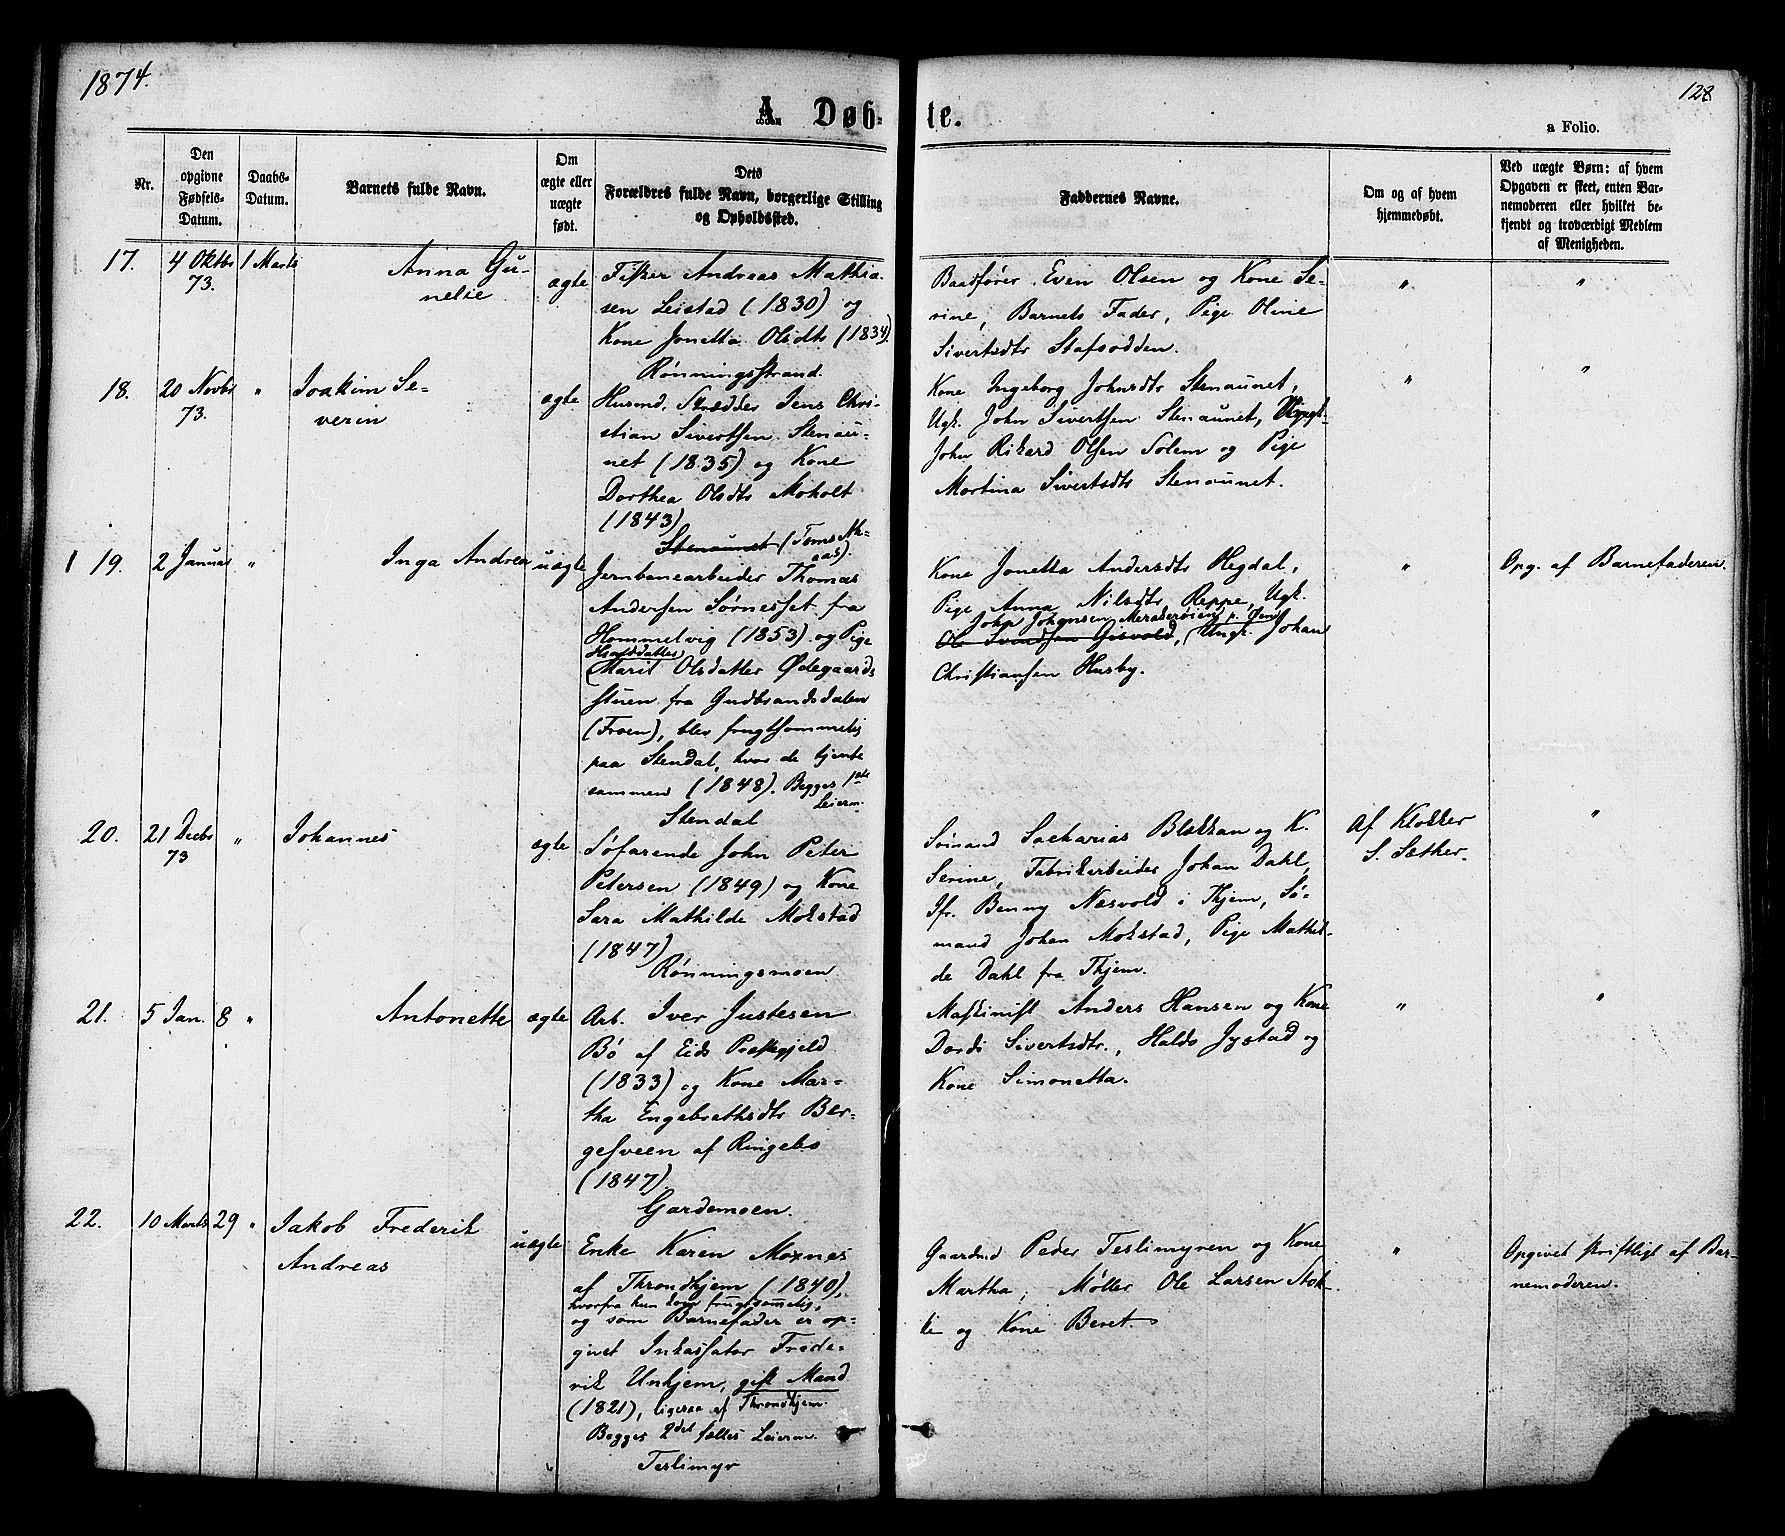 1874.
128
A Døb-
te.
a Folio.
Nr.
Den
opgivne
Fødsels-
Datum.
Daabs-
Datum.
Barnets fulde Navn.
Om
ægte eller
uægte
født.
Dets
Forældres fulde Navn, borgerlige Stilling
og Opholdssted.
Faddernes Navne.
Om og af hvem
hjemmedøbt.
Ved uægte Børn: af hvem
Opgaven er skeet, enten Bar-
nemoderen eller hvilket be-
kjendt og troværdigt Medlem
af Menigheden.
17.
4 Oktbr
73.
1 Marts
Anna Gu-
nelie
ægte
Fisker Andreas Mathia-
sen Leistad (1830) og
Kone Jonetta Olsdtr (1834).
Rønningsstrand.
Baadfører Even Olsen og Kone Se-
rine, Barnets Fader, Pige Oline
Sivertsdtr Stafsodden.
"
"
18.
20 Novbr
73.
"
Joakim Se-
verin
ægte
Husmd. Skrædder Jens Chri-
stian Sivertsen Stenau-
net (1835) og Kone
Dorthea Olsdtr Moholt
(1843)
Stenaunet
Kone Ingeborg Johnsdtr Stenaunet,
Ugk. John Sivertsen Stenaunet,
John Rikard Olsen Solem og Pige
Martina Sivertsdtr Stenaunet.
"
"
1 19.
2 Januar
"
Inga Andrea
uægte
Jernbanearbeider Thomas
Andersen Sørnesset fra
Hommelvig (1853) og Pige
Marit Olsdatter Ødegaards
stuen fra Gudbrandsdalen
(Froen), blev frugtsommelig
paa Stendal, hvor de tjente
sammen (1848). Begges 1ste
Leierm.
Stendal
Kone Jonetta Andersdtr Hegdal,
Pige Anna Nilsdtr Reppe, Ugk.
John Johansen
Ole Svendsen Gisvold, Ungk. Johan
Christiansen Husby.
"
Opg. af Barnefaderen.
20.
21 Decbr
73
"
Johannes
ægte
Søfarende John Peter
Petersen (1849) og Kone
Sara Mathilde Mokstad
(1847)
Rønningsmoen
Sømand Sacharias Blekkan og K.
Serine, Fabrikarbeider Johan Dahl,
Jfr. Benny Næsvold i Thjem, Sø-
mand Johan Mokstad, Pige Mathil-
de Dahl fra Thjem.
Af Klokker
S. Sæther.
"
21.
5 Jan.
8 "
Antonette
ægte
Arb. Iver Justesen
Bø af Eids Præstegjeld
(1833) og Kone Mar-
tha Engebrethsdtr Ber-
gesveen af Ringebo
(1847)
Gardemoen.
Maskinist Anders Hansen og Kone
Dordi Sivertsdtr., Haldo Jystad og
Kone Simonetta.
"
"
22.
10 Marts
29 "
Jakob Frederik
Andreas
uægte
Enke Karen Moxnes
af Throndhjem (1840),
hvorfra hun kom frugtsommelig,
og som Barnefader er op-
givet Inkassator Frede-
rik Unhjem, gift Mand
(1821), ligesaa af Throndhjem.
Begges 2det fælles Leierm.
Teslimyr
Gaardmd Peder Teslimyren og Kone
Martha, Møller Ole Larsen Nok-
ke og Kone Beret.
"
Opgivet skriftligt af Bar-
nemoderen.